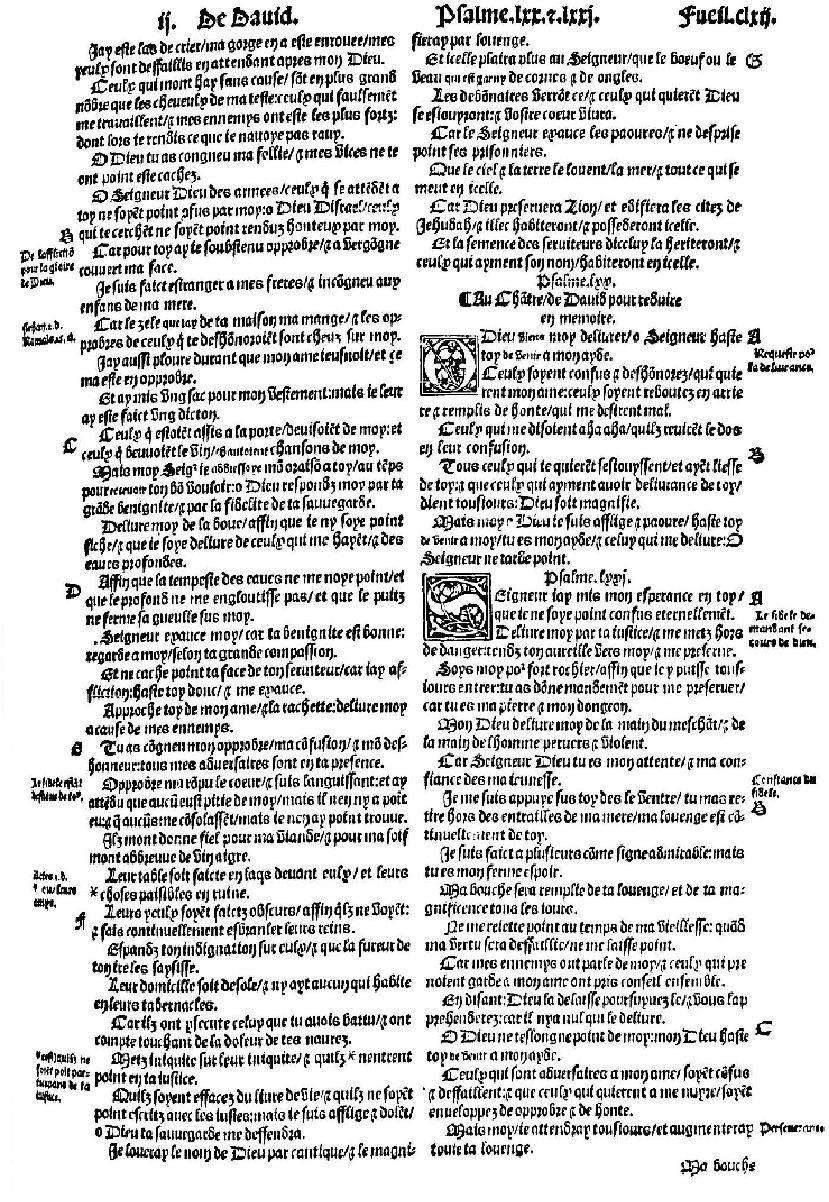 ij. De David. Psalme.lxx.⁊.lxxj. Fueil.clxij.
Jay este las de crier/ma gorge en a este enrouee/mes
yeulx sont deffaillis en attendant apres mon Dieu.
Ceulx qui mont hay sans cause/ sõt en plus grand
nõbre que les cheveulx de ma teste:ceulx qui faulsemẽt
me travaillent/⁊ mes ennemys ont este les plus fortz:
dont lors ie rendis ce que ie navoye pas ravy.
O Dieu tu as congneu ma follie/⁊ mes vices ne te
ont point este cachez.
O Seigneur Dieu des armees/ceulx q̃ se attẽdẽt a
toy ne soyẽt point ꝯfus par moy:o Dieu Disrael/ceulx
qui te cerchẽt ne soyẽt point renduz honteux par moy.
B
Car pour toy ay ie soubstenu opprobre/⁊ a vergõgne
couvert ma face.
De lafflictiõ
pour la gloire
de Dieu.
Je suis faict estranger a mes freres/⁊ incõgneu aux
enfans de ma mere.
Car le zele que iay de ta maison ma mange/⁊ les op-
probres de ceulx q̃ te deshõnoroiẽt sont cheuz sur moy.
Jehan.2.b.
Jay aussi ploure durant que mon ame ieusnoit/et ce
ma este en opprobre.
Et ay mis vng sac pour mon vestement:mais ie leur
ay este faict vng dicton.
C
Ceulx q̃ estoiẽt assis a la porte/devisoiẽt de moy:et
ceulx q̃ beuvoiẽt le vin/ chansons de moy.
Mais moy Seigr ie addressoye mõ oraisõ a toy/au tẽps
pour recevoir ton bõ vouloir:o Dieu respondz moy par ta
grãde benignite/⁊ par la fidelite de ta sauvegarde.
Delivre moy de la boue/affin que ie ny soye point
fiche/⁊ que ie soye delivre de ceulx qui me hayẽt/⁊ des
eaues profondes.
D
Affin que la tempeste des eaues ne me noye point/et
que le profond ne me engloutisse pas/et que le puitz
ne ferme sa gueulle sus moy.
Seigneur exauce moy/car ta benignite est bonne:
regarde a moy/selon ta grande compassion.
Et ne cache point ta face de ton serviteur/car iay af-
fliction:haste toy donc/⁊ me exauce.
Approche toy de mon ame/⁊ la rachette:delivre moy
a cause de mes ennemys.
E
Tu as cõgneu mon opprobre/ma cõfusion/⁊ mõ des-
honneur:tous mes adversaires sont en ta presence.
Opprobre ma rõpu le coeur/⁊ suis languissant:et ay
attẽdu que aucũ eust pitie de moy/mais il nen ny a poĩt
eu:⁊ q̃ aucũs me cõsolassẽt/mais ie nen ay point trouve.
Ilz mont donne fiel pour ma viande/⁊ pour ma soif
mont abbreuve de vinaigre.
Leur table soit faicte en laqs devant eulx/ et leurs
* choses paisibles en ruine.
F
Leurs yeulx soyẽt faictz obscurs/affin q̃lz ne voyẽt:
⁊ fais continuellement esbranler leurs reins.
Espandz ton indignation sur eulx/⁊ que la fureur de
ton ire les saysisse.
Leur domicille soit desole/⁊ ny ayt aucun qui habite
en leurs tabernacles.
Car ilz ont ꝑsecute celuy que tu avois batu/⁊ ont
compte touchant de la doleur de tes naurez.
Metz iniquite sur leur iniquite/⁊ quilz * nentrent
point en ta iustice.
Quilz soyent effacez du livre de vie/⁊ quilz ne soyẽt
point escritz avec les iustes:mais ie suis afflige ⁊ dolẽt/
o Dieu ta sauvegarde me deffendra.
Je loueray le nom de Dieu par cantique/⁊ le magni-
fieray par louenge.
G
Et icelle plaira plus au Seigneur/que le boeuf ou le
veau qui est garny de cornes ⁊ de ongles.
Les debõnaires verrõt ce/⁊ ceulx qui quierẽt Dieu
se esiouyront:⁊ vostre coeur vivra.
Car le Seigneur exauce les paovres/⁊ ne desprise
point ses prisonniers.
Que le ciel ⁊ la terre le louent/la mer/⁊ tout ce qui se
meut en icelle.
Car Dieu preservera Zion/ et edifiera les citez de
Jehudah/⁊ illec habiteront/⁊ possederont icelle.
Et la semence des serviteurs dicelluy la heriteront/⁊
ceulx qui ayment son nom/habiteront en icelle.
Psalme.lxx.
Au Chãtre/de David pour reduire
en memoire.
A
O Dieu vueille moy delivrer/o Seigneur haste
toy de venir a mon ayde.
Requeste por
la delivrance.
Ceulx soyent confus ⁊ deshõnorez/qui quie
rent mon ame:ceulx soyent reboutez en arrie
re ⁊ remplis de honte/qui me desirent mal.
Ceulx qui me disoient aha aha/quilz tournẽt le dos
en leur confusion.
B
Tous ceulx qui te quierẽt sesiouyssent/et ayẽt liesse
de toy:⁊ que ceulx qui ayment avoir delivrance de toy/
dient tousiours:Dieu soit magnifie.
Mais moy o Dieu ie suis afflige ⁊ paovre/ haste toy
de venir a moy/tu es mon ayde/⁊ celuy qui me delivre:O
Seigneur ne tarde point.
Psalme.lxxj.
A
Seigneur iay mis mon esperance en toy/
que ie ne soye point confus eternellemẽt.
Delivre moy par ta iustice/⁊ me metz hors
de danger:tendz ton aureille vers moy/⁊ me preserve.
Le fidele de-
mandant se-
cours de dieu.
Soys moy por fort rochier/affin que ie y puisse tous-
iours entrer:tu as dõne mandemẽt pour me preserver/
car tu es ma pierre ⁊ mon dongeon.
Mon Dieu delivre moy de la main du meschãt/⁊ de
la main de lhomme pervers ⁊ violent.
Car Seigneur Dieu tu es mon attente/⁊ ma con-
fiance des ma ieunesse.
Constance du
fidele.
B
Je me suis appuye sus toy des le ventre/ tu mas re-
tire hors des entrailles de ma mere/ma louenge est cõ-
tinuellement de toy.
Je suis faict a plusieurs cõme signe admirable:mais
tu es mon ferme espoir.
Ma bouche sera remplie de ta louenge/et de ta ma-
gnificence tous les iours.
Ne me reiette point au temps de ma vieillesse: quãd
ma vertu sera deffaillie/ne me laisse point.
Car mes ennemys ont parle de moy/⁊ ceulx qui pre
noient garde a mon ame ont pris conseil ensemble.
En disant:Dieu la delaisse poursuyvez le/⁊ vous lap
prehenderez:car il nya nul qui le delivre.
C
O Dieu ne teslongne point de moy:mon Dieu haste
toy de venir a mon ayde.
Ceulx qui sont adversaires a mon ame/ soyẽt cõfus
⁊ deffaillent:⁊ que ceulx qui quierent a me nuyre/soyẽt
enveloppez de opprobre ⁊ de honte.
Mais moy/ie attendray tousiours/et augmenteray
toute ta louenge.
Ma bouche